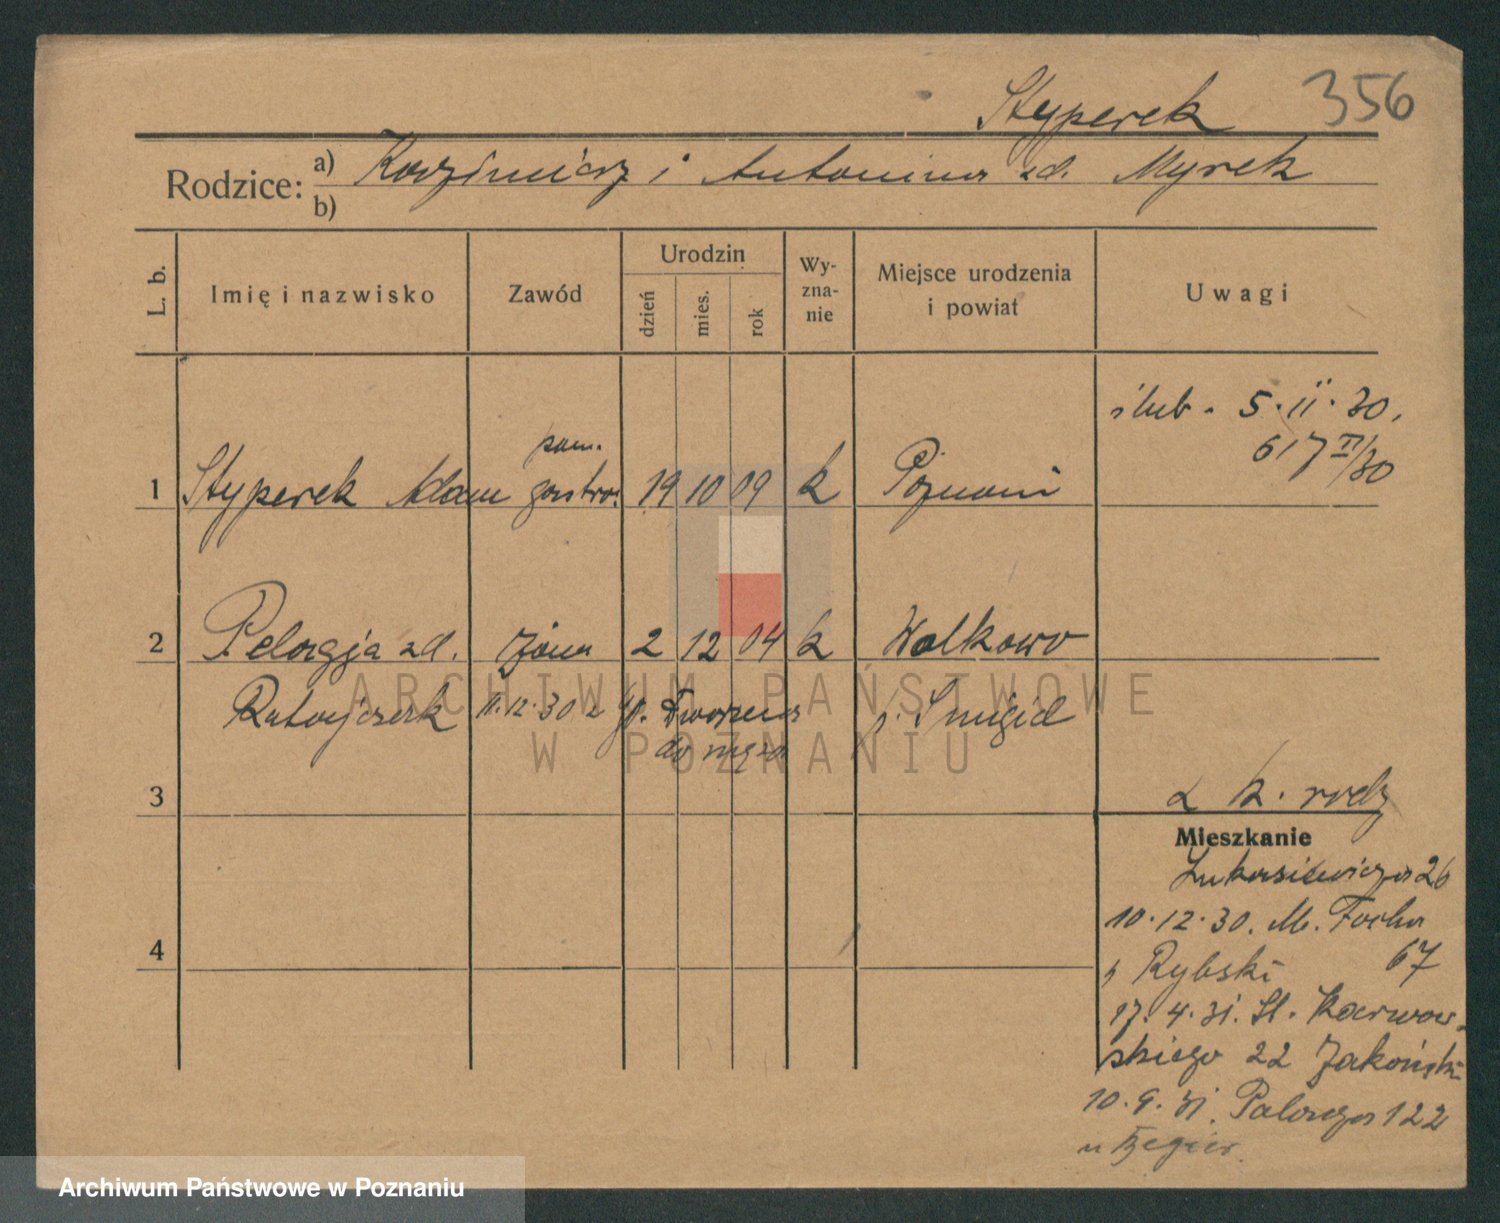 Styperek 356
Rodzice: a) Kazimierz i Antonina zd. Myrek
b)
L. b. Imię i nazwisko Zawód Urodzin dzień mies. rok Wy-zna-nie Miejsce urodzenia i powiat Uwagi
ślub. 5.II.30.
617 II/30
pom.
1 Styperek Adam gastro. 19 10 09 k Poznań
2 Pelagja zd. żona 2 12 04 k Wolkowo
Ratajczak 11.12.30 z p. Śmigiel
do męża
ARCHIWUM PAŃSTWOWE
W POZNANIU
3
z k. rodz
Mieszkanie
Łukasiewicza 26
10.12.30. M. Focha
67
Rybski
4
17.4.31. St. Karwow-
skiego 22
10.9.31. 122
u
Archiwum Państwowe w Poznaniu